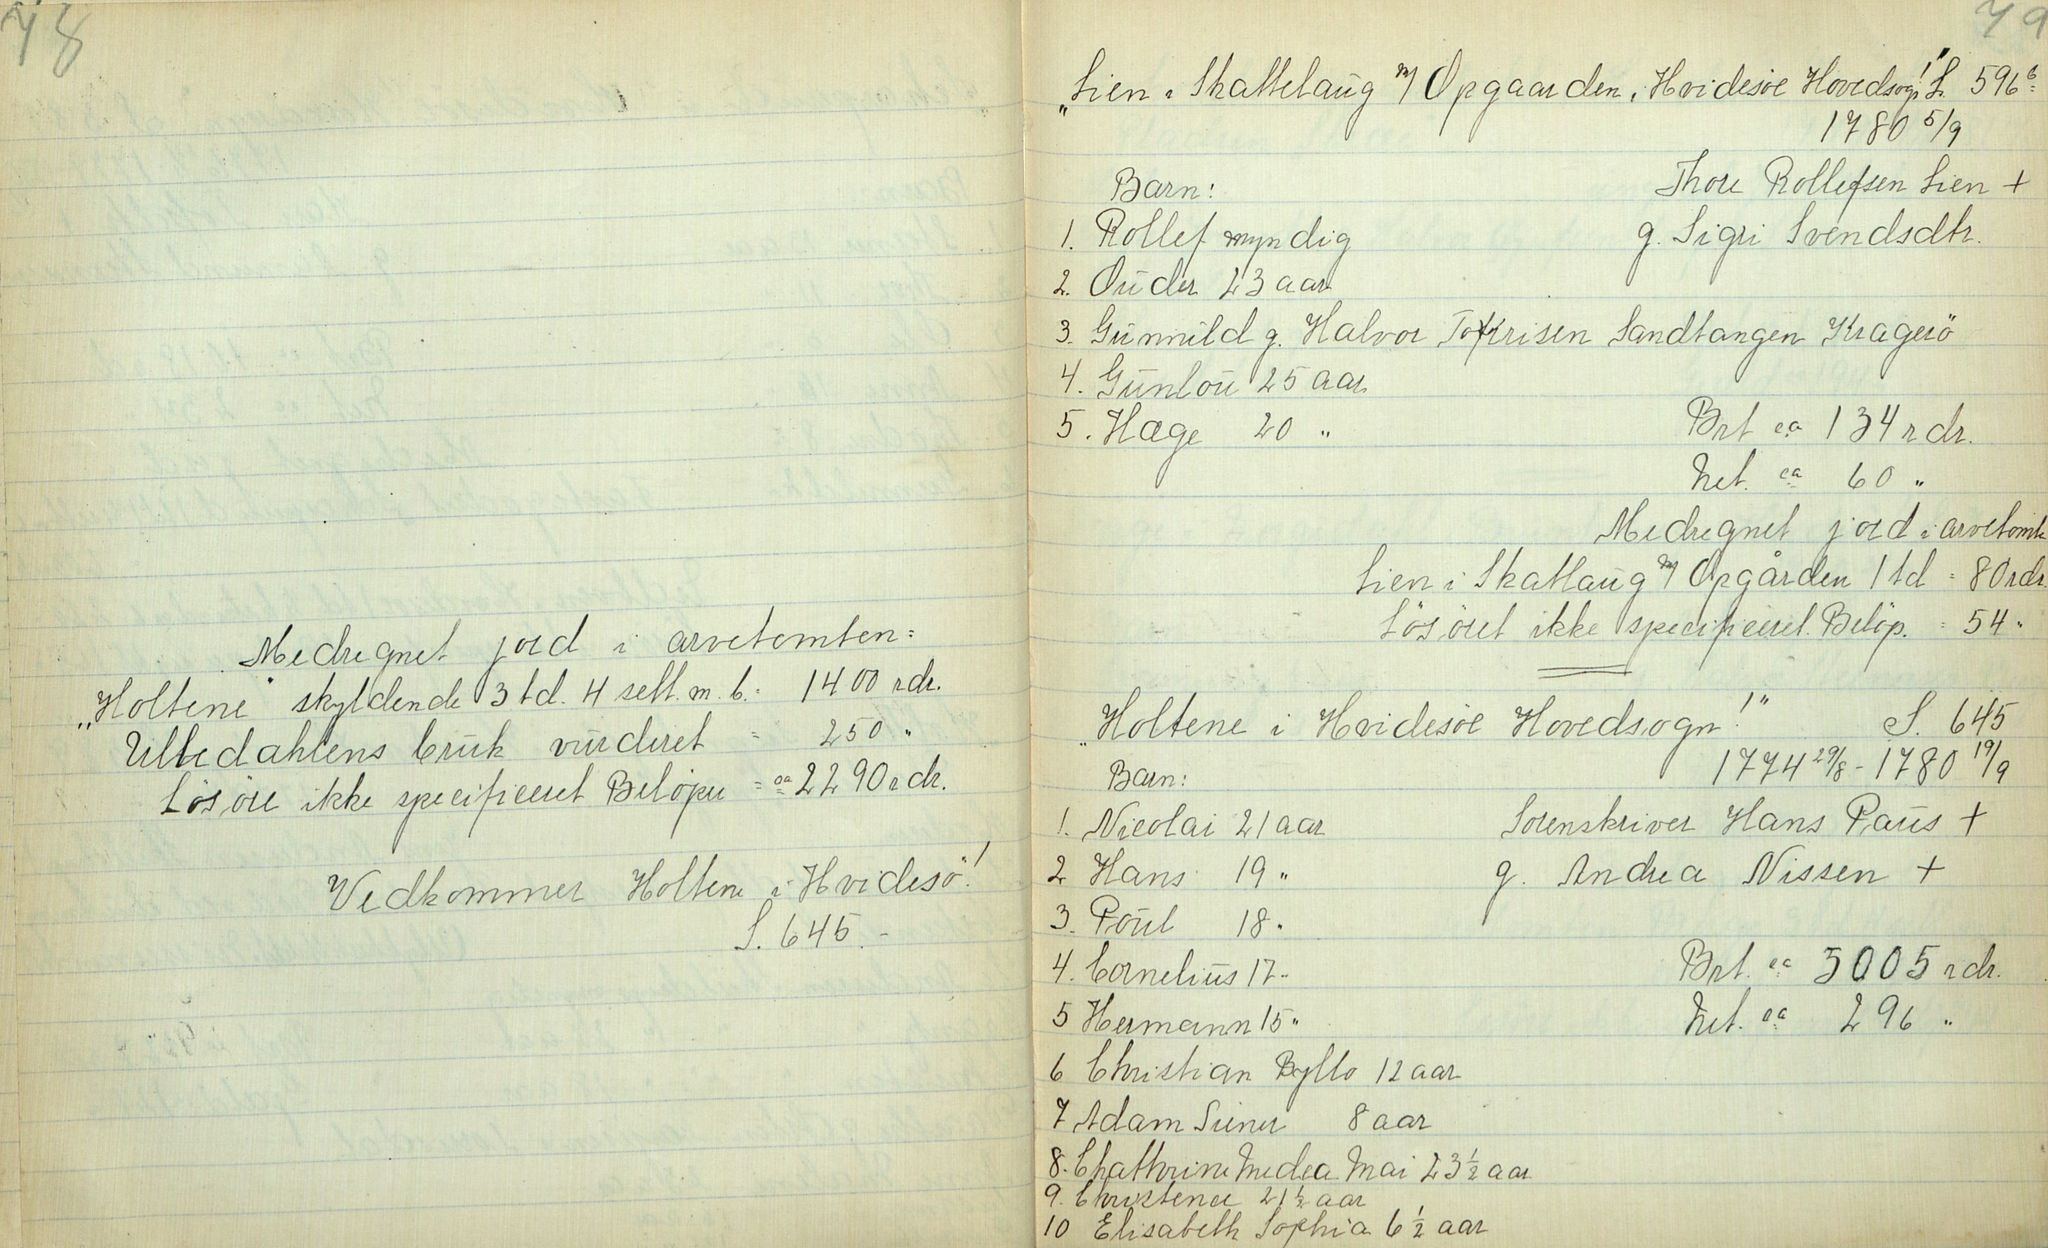 78
Medregnet jord i arvetomten =
„Holtene" skyldende 3 td. 4 sett. m. b. = 1400 rdr.
Ulledahlens bruk vurderet = 250 "
Lösöre ikke specificeret Belöper = ca 2290 rdr.
Vedkommer Holtene i Hvidesö!
S. 645.-
79
„Lien i Skattelaug m/ Opgaarden i Hvidesöe Hovedsogn!" S. 596 b
1780 5/9
Barn: Thore Rollefsen Lien +
1. Rollef myndig g. Sigri Svendsdtr.
2. Ouder 23 aar
3. Gunnild g. Halvor Tofrisen Sandtangen Kragerö
4. Gunlou 25 aar
5. Hæge 20 " Brt ca 134 rdr.
Net. ca 60 "
Medregnet jord i arvetomte
Lien i Skatlaug m/ Opgården 1 td = 80 rdr.
Lösöret ikke specificeret. Belöp. = 54 "
„Holtene i Hvidesöe Hovedsogn!" S. 645
1774 29/8 - 1780 19/9
Barn:
1. Nicolai 21 aar Sorenskriver Hans Paus +
2 Hans 19 " g. Andrea Nissen +
3. Poul 18 "
4. Cornelius 17 - Brt. ca 5005 rdr.
5 Hermann 15 " Net. ca 296 "
6 Christian Bÿllo 12 aar
7 Adam 8 aar
8. Chathrine Medea Mai 23 1/2 aar
9. Christence 21 1/2 aar
10 Elisabeth Sophia 6 1/2 aar